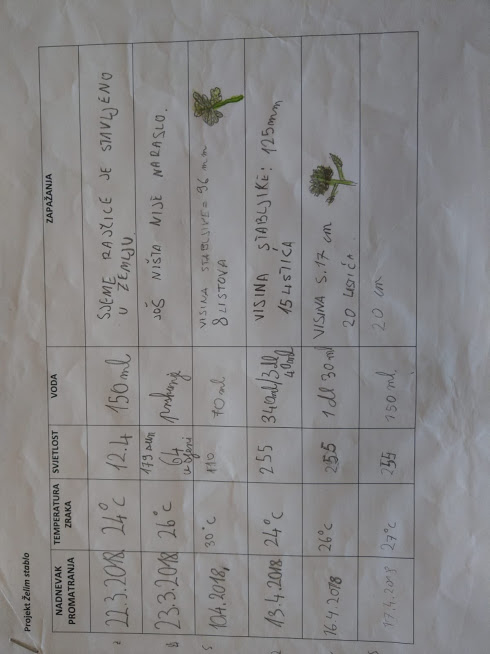 Projekt Želim stablo
NADNEVAK PROMATRANJA TEMPERATURA ZRAKA SVJETLOST VODA ZAPAŽANJA
22.3.2018. 24°C 12.4 150ml SJEME RAJČICE JE STAVLJENO
U ZEMLJU
23.3.2018 26°C 179 64 JOŠ NIŠTA NIJE NARASLO.
10.4.2018. 30°C 110 70ml VISINA STABLJIKE= 96 mm
8 LISTOVA
13.4.2018 24°C 255 340ml/3dl 40ml VISINA STABLJIKE: 125mm
15 LISTIĆA
16.4.2018 26°C 255 1 dl 30 ml VISINA S. 17 cm
20 LISTIĆA
17.4.2018 27°C 255 150 ml 20 cm